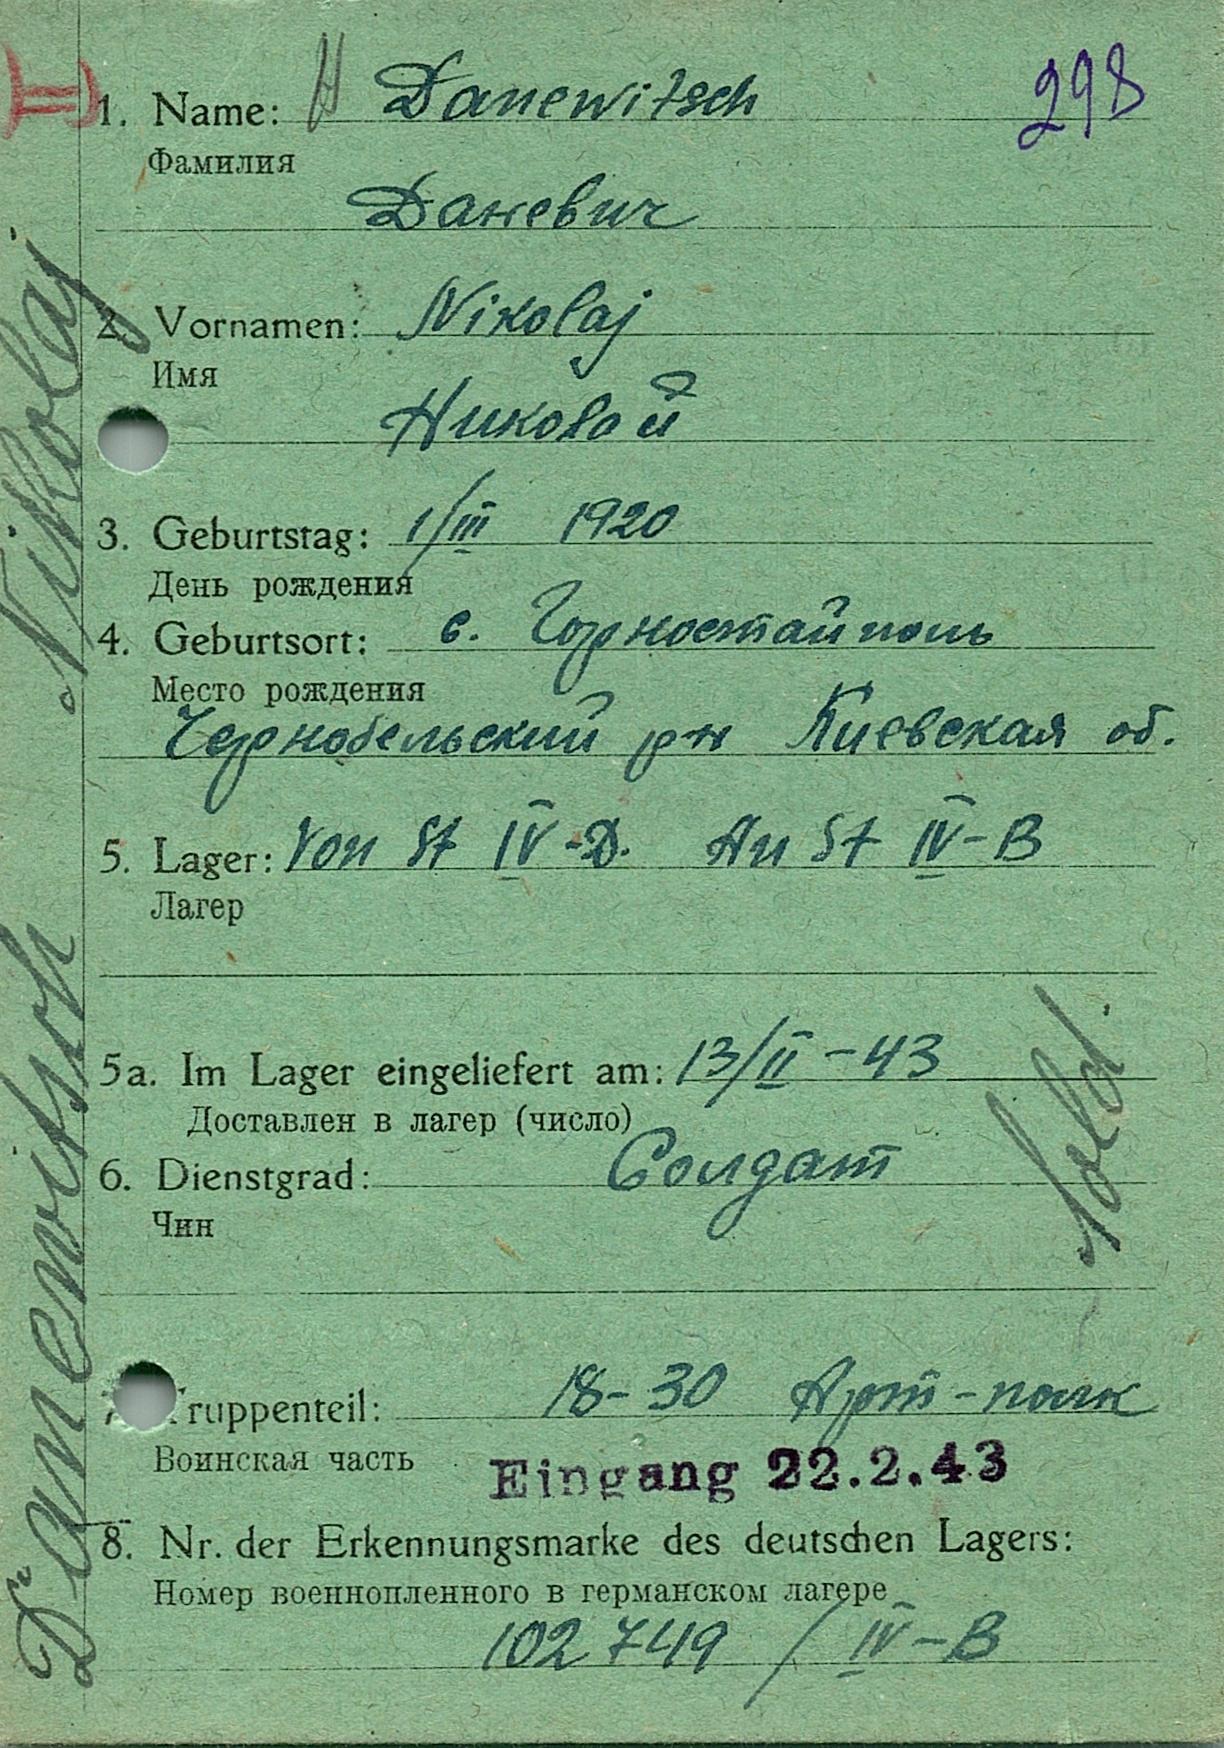 298
1. Name: Danewitsch
Фамилия
Даневич
2. Vornamen: Nikolaj
Имя
Николай
3. Geburtstag: 1/III 1920
День рождения
4. Geburtsort: с. Горностайполь
Место рождения
Чернобельский р-н Киевская об.
5. Lager: Von St IV-D. An St IV-B
Лагер
5a. Im Lager eingeliefert am: 13/II-43
Доставлен в лагер (число)
6. Dienstgrad: Солдат
Чин
Sold.
7. Truppenteil: 18-30 Арт-полк
Воинская часть
Eingang 22.2.43
8. Nr. der Erkennungsmarke des deutschen Lagers:
Номер военнопленного в германском лагере
102749 / IV-B
Danewitsch Nikolaj